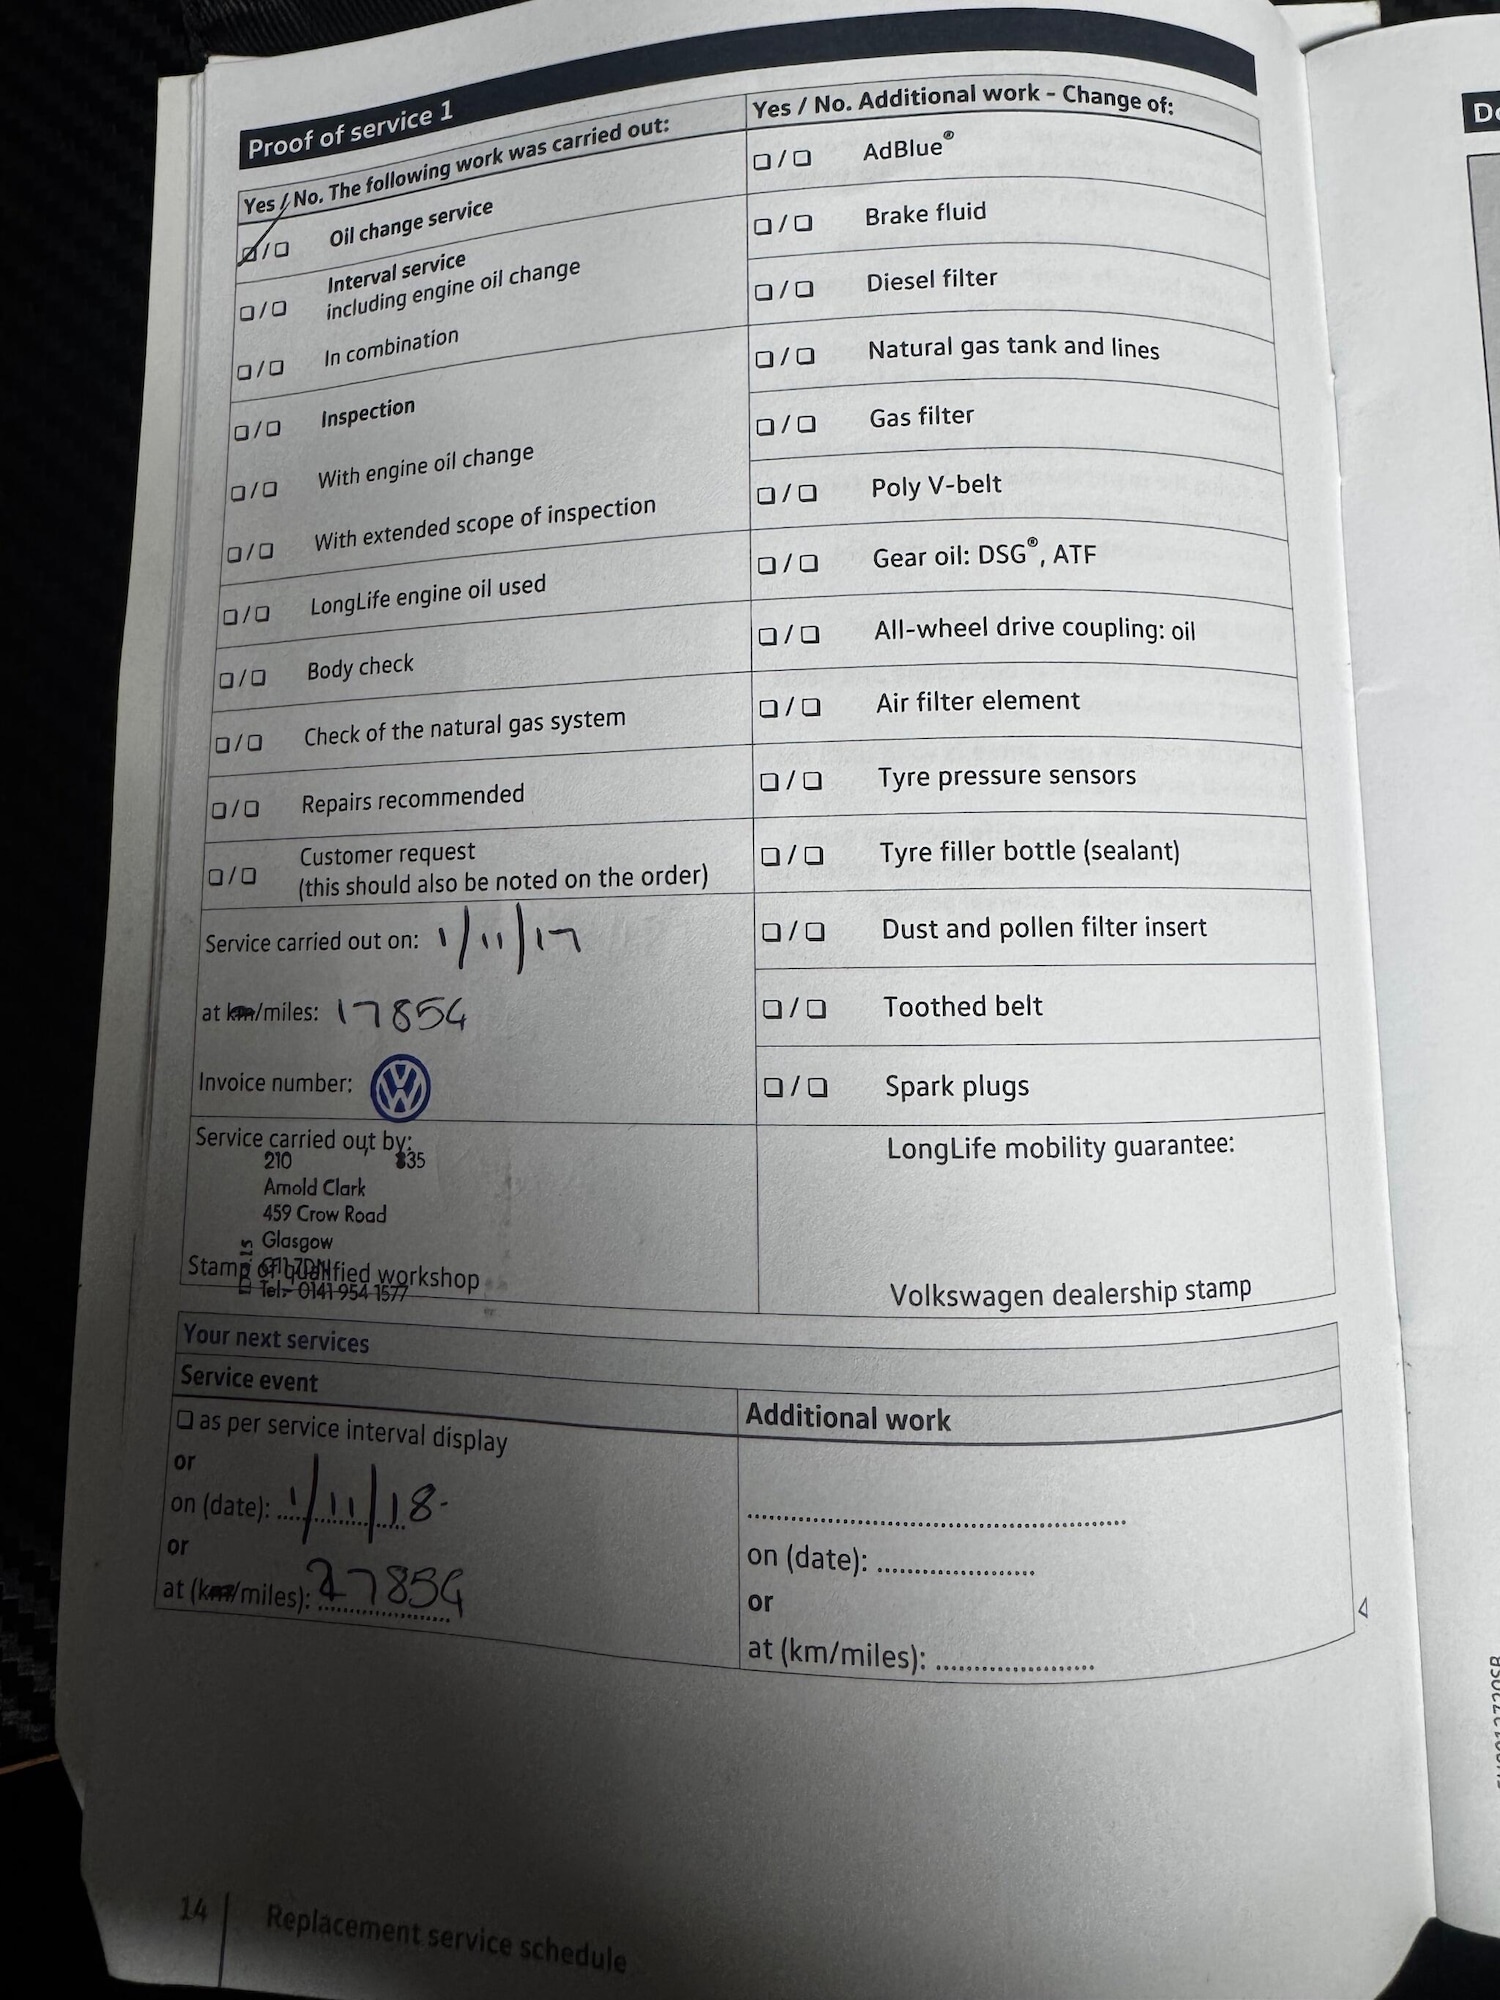 Proof of service 1
Yes / No. The following work was carried out:
☑/☐ Oil change service
☐/☐ Interval service
including engine oil change
☐/☐ In combination
☐/☐ Inspection
☐/☐ With engine oil change
☐/☐ With extended scope of inspection
☐/☐ LongLife engine oil used
☐/☐ Body check
☐/☐ Check of the natural gas system
☐/☐ Repairs recommended
☐/☐ Customer request
(this should also be noted on the order)
Service carried out on: 1/11/17
at km/miles: 17854
Invoice number:
VW
Service carried out by:
210 835
Arnold Clark
459 Crow Road
Glasgow
G11 7DN
Tel:- 0141 954 1577
Stamp of qualified workshop
Yes / No. Additional work - Change of:
☐/☐ AdBlue®
☐/☐ Brake fluid
☐/☐ Diesel filter
☐/☐ Natural gas tank and lines
☐/☐ Gas filter
☐/☐ Poly V-belt
☐/☐ Gear oil: DSG®, ATF
☐/☐ All-wheel drive coupling: oil
☐/☐ Air filter element
☐/☐ Tyre pressure sensors
☐/☐ Tyre filler bottle (sealant)
☐/☐ Dust and pollen filter insert
☐/☐ Toothed belt
☐/☐ Spark plugs
LongLife mobility guarantee:
Volkswagen dealership stamp
Your next services
Service event
☐ as per service interval display
or
on (date): 1/11/18
or
at (km/miles): 27854
Additional work
on (date): ......................
or
at (km/miles): ......................
14
Replacement service schedule